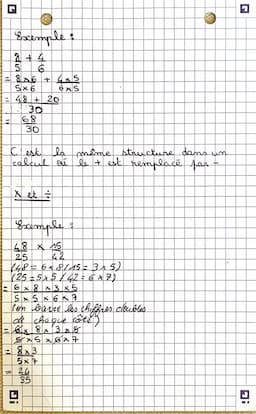 Exemple :
8/5 + 4/6
= 8x6/5x6 + 4x5/6x5
= 48 + 20/30
= 68/30
C'est la même structure dans un
calcul où le + est remplacé par -
X et ÷
Exemple :
48/25 x 15/42
(48 = 6 x 8 / 15 = 3 x 5)
(25 = 5 x 5 / 42 = 6 x 7)
= 6 x 8 x 3 x 5/5 x 5 x 6 x 7
(on barre les chiffres doubles
de chaque côté)
= 6 x 8 x 3 x 5/5 x 5 x 6 x 7
= 8 x 3/5 x 7
= 24/35